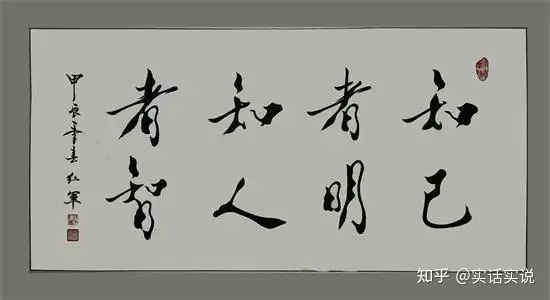 知己
者明
知人
者智
甲辰年春红军
知乎 @实话实说